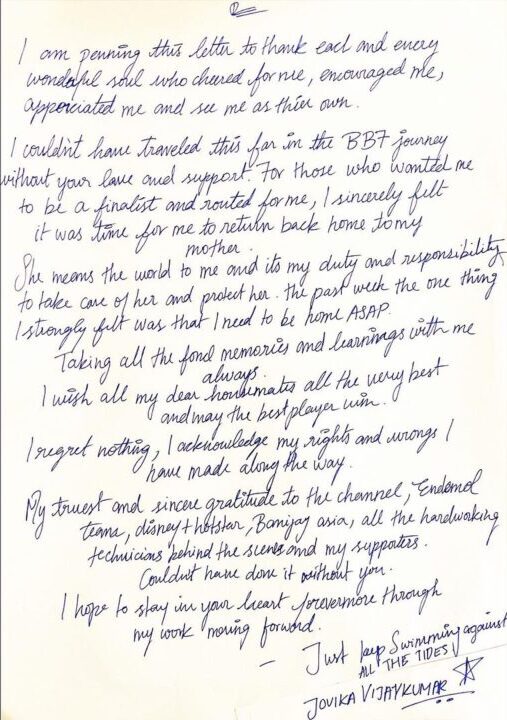 I am penning this letter to thank each and every
wonderful soul who cheered for me, encouraged me,
appreciated me and see me as thier own.
I couldn't have traveled this far in the BB7 journey
without your love and support. For those who wanted me
to be a finalist and routed for me, I sincerely felt
it was time for me to return back home to my
mother.
She means the world to me and its my duty and responsibility
to take care of her and protect her. The past week the one thing
I strongly felt was that I need to be home ASAP.
Taking all the fond memories and learnings with me
always.
I wish all my dear housemates all the very best
and may the best player win.
I regret nothing, I acknowledge my rights and wrongs I
have made along the way.
My truest and sincere gratitude to the channel, Endemol
team, disney+hotstar, Banijay asia, all the hardworking
technicians behind the scenes and my supporters.
Couldn't have done it without you.
I hope to stay in your heart forevermore through
my work moving forward.
- Just keep Swimming against
ALL THE TIDES!
JOVIKA VIJAYKUMAR